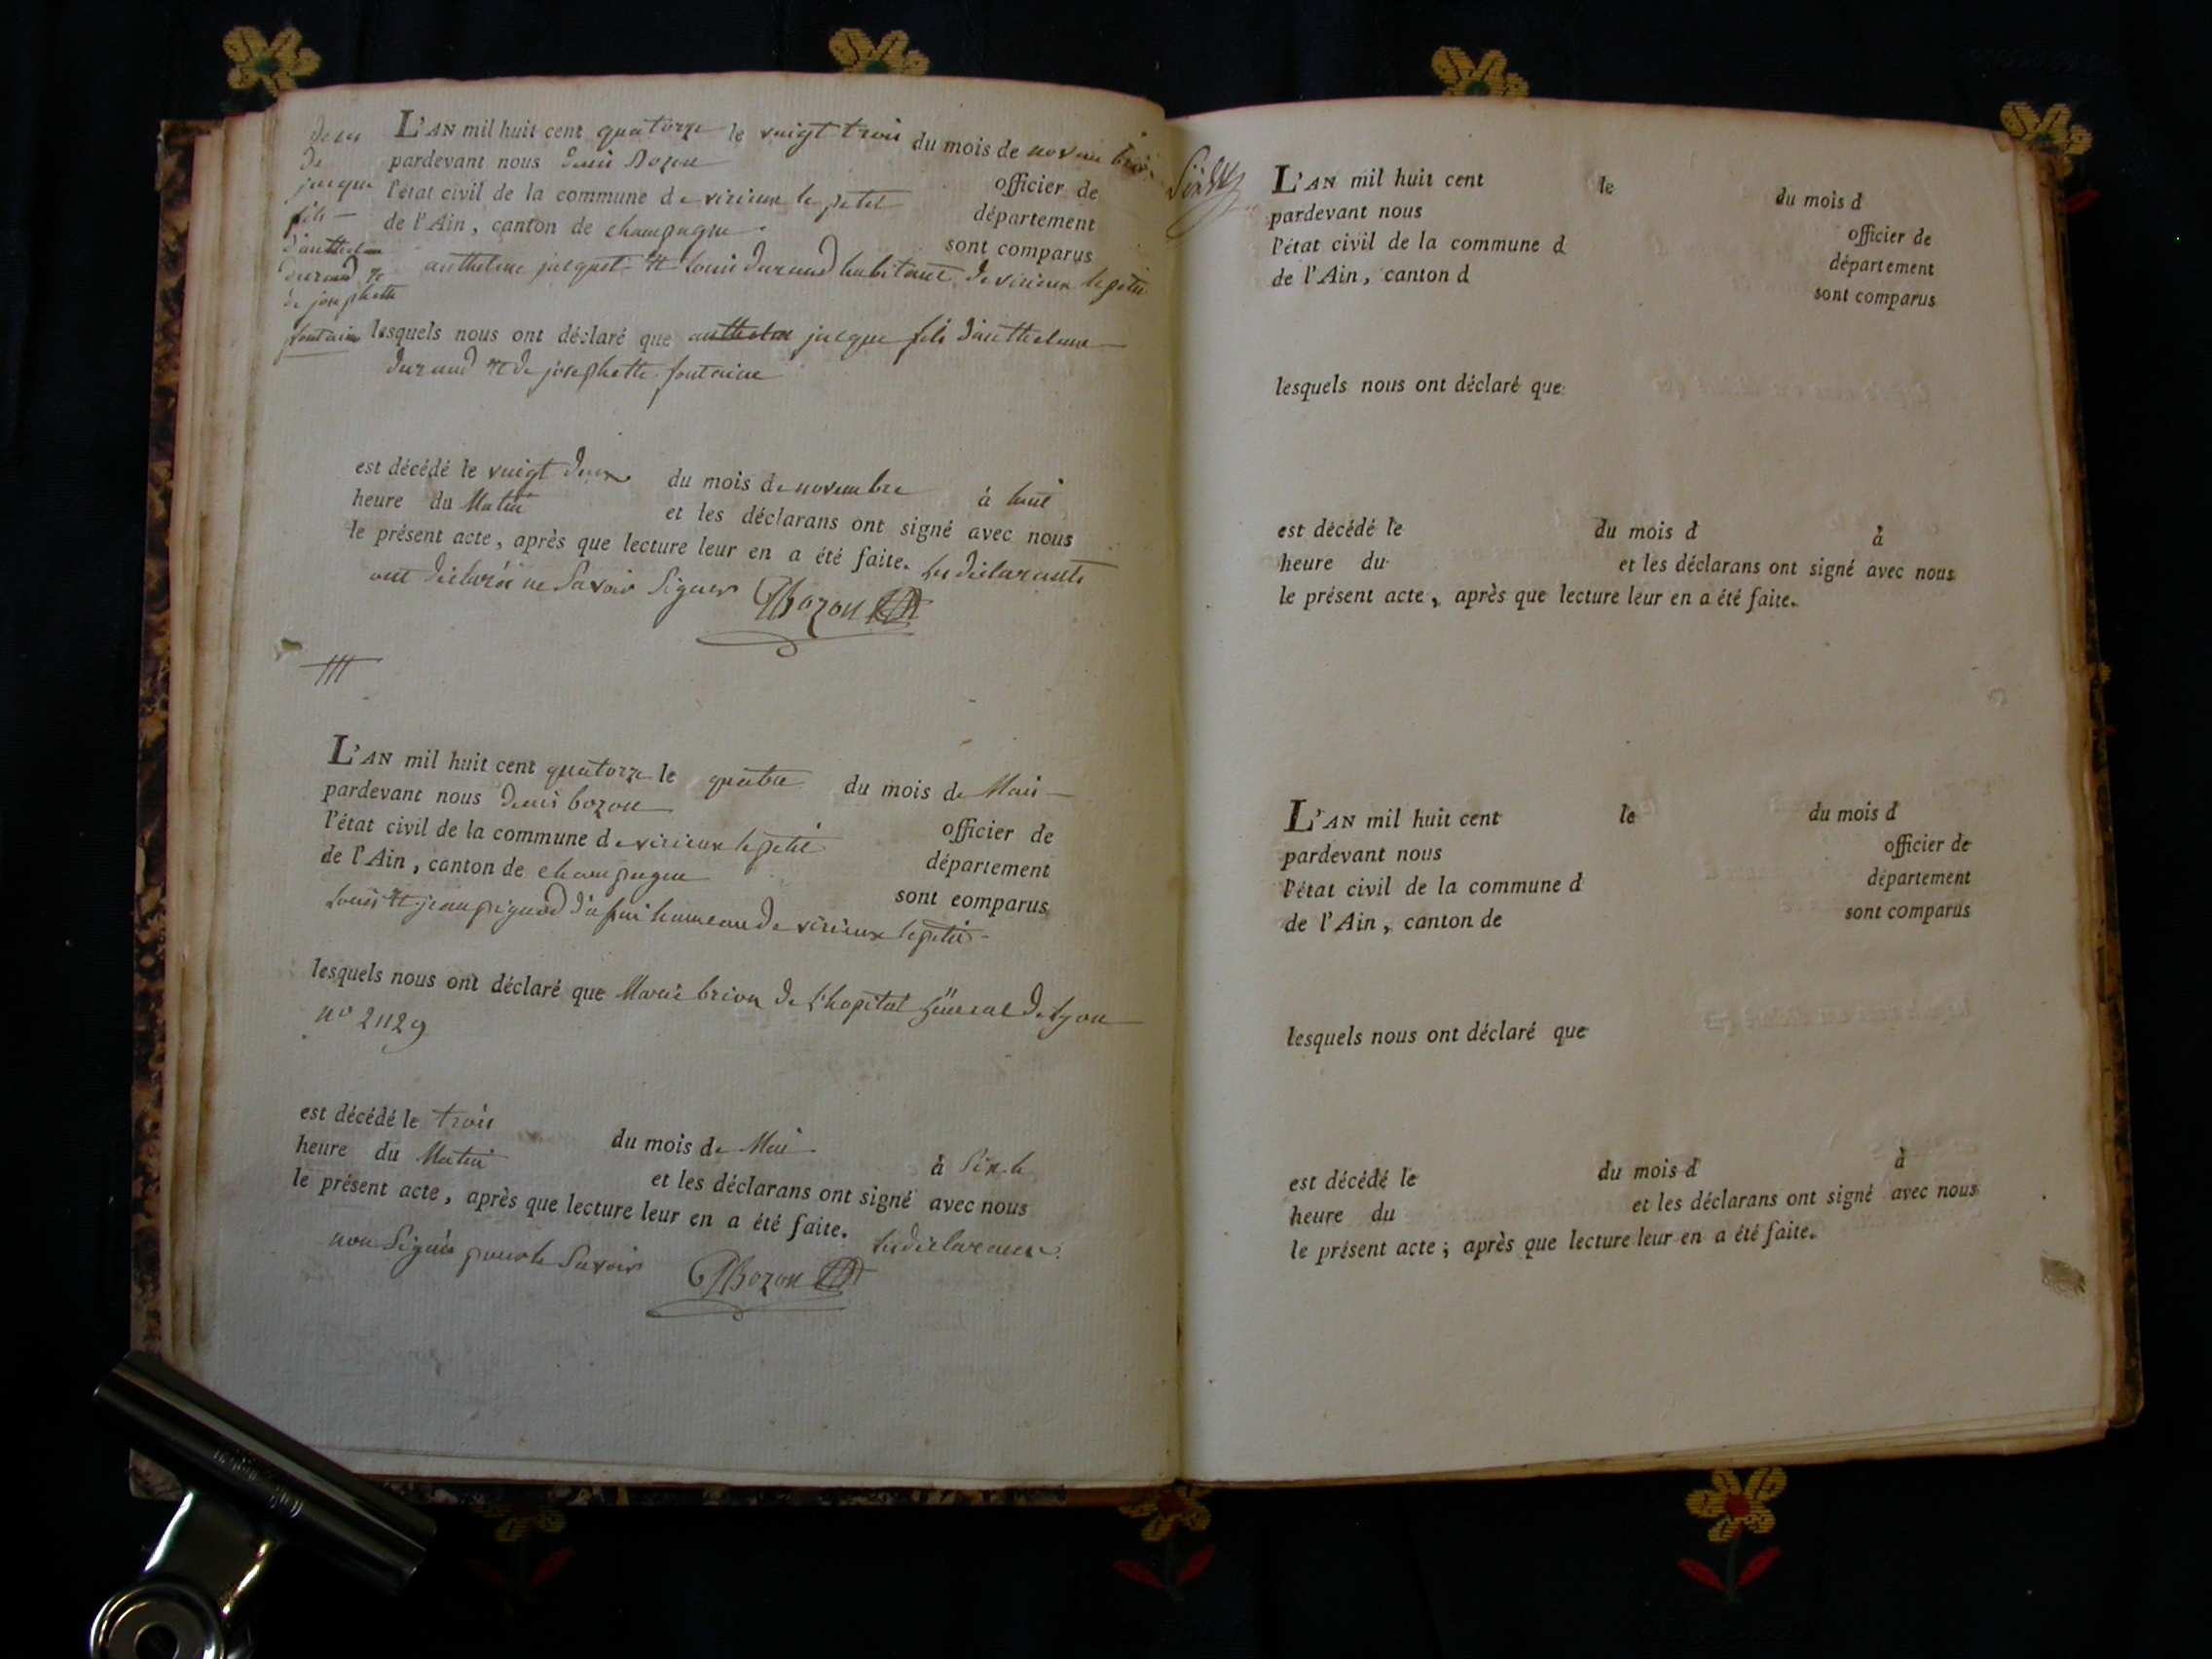 deces
de
jacque
fils —
d'anthelme
durand et
de josephette
fontaine
L'AN mil huit cent quatorze le vingt trois du mois de novembre
pardevant nous denis Bozon officier de
l'état civil de la commune de virieux le petit département
de l'Ain, canton de champagne sont comparus
anthelme jacquet et Louis durand habitant de virieux le petit
lesquels nous ont déclaré que anthelme jacque fils d'anthelme
durand et de josephette fontaine
est décédé le vingt deux du mois de novembre à huit
heure du Matin et les déclarans ont signé avec nous
le présent acte, après que lecture leur en a été faite. les déclarants
ont déclarés ne Savoir Signer Bozon
L'AN mil huit cent quatorze le quatre du mois de Mai
pardevant nous denis bozon officier de
l'état civil de la commune de virieux le petit département
de l'Ain, canton de champagne sont comparus
Louis et jean pignod hameau de virieux le petit
lesquels nous ont déclaré que Marie brion de L'hopital Géneral de Lyon
n° 21129
est décédé le trois du mois de Mai à Six h
heure du Matin et les déclarans ont signé avec nous
le présent acte, après que lecture leur en a été faite. les déclarans
non Signés pour le Savoir Bozon
L'AN mil huit cent le du mois d
pardevant nous officier de
l'état civil de la commune d département
de l'Ain, canton d sont comparus
lesquels nous ont déclaré que
est décédé le du mois d à
heure du et les déclarans ont signé avec nous
le présent acte, après que lecture leur en a été faite.
L'AN mil huit cent le du mois d
pardevant nous officier de
l'état civil de la commune d département
de l'Ain, canton de sont comparus
lesquels nous ont déclaré que
est décédé le du mois d à
heure du et les déclarans ont signé avec nous
le présent acte; après que lecture leur en a été faite.